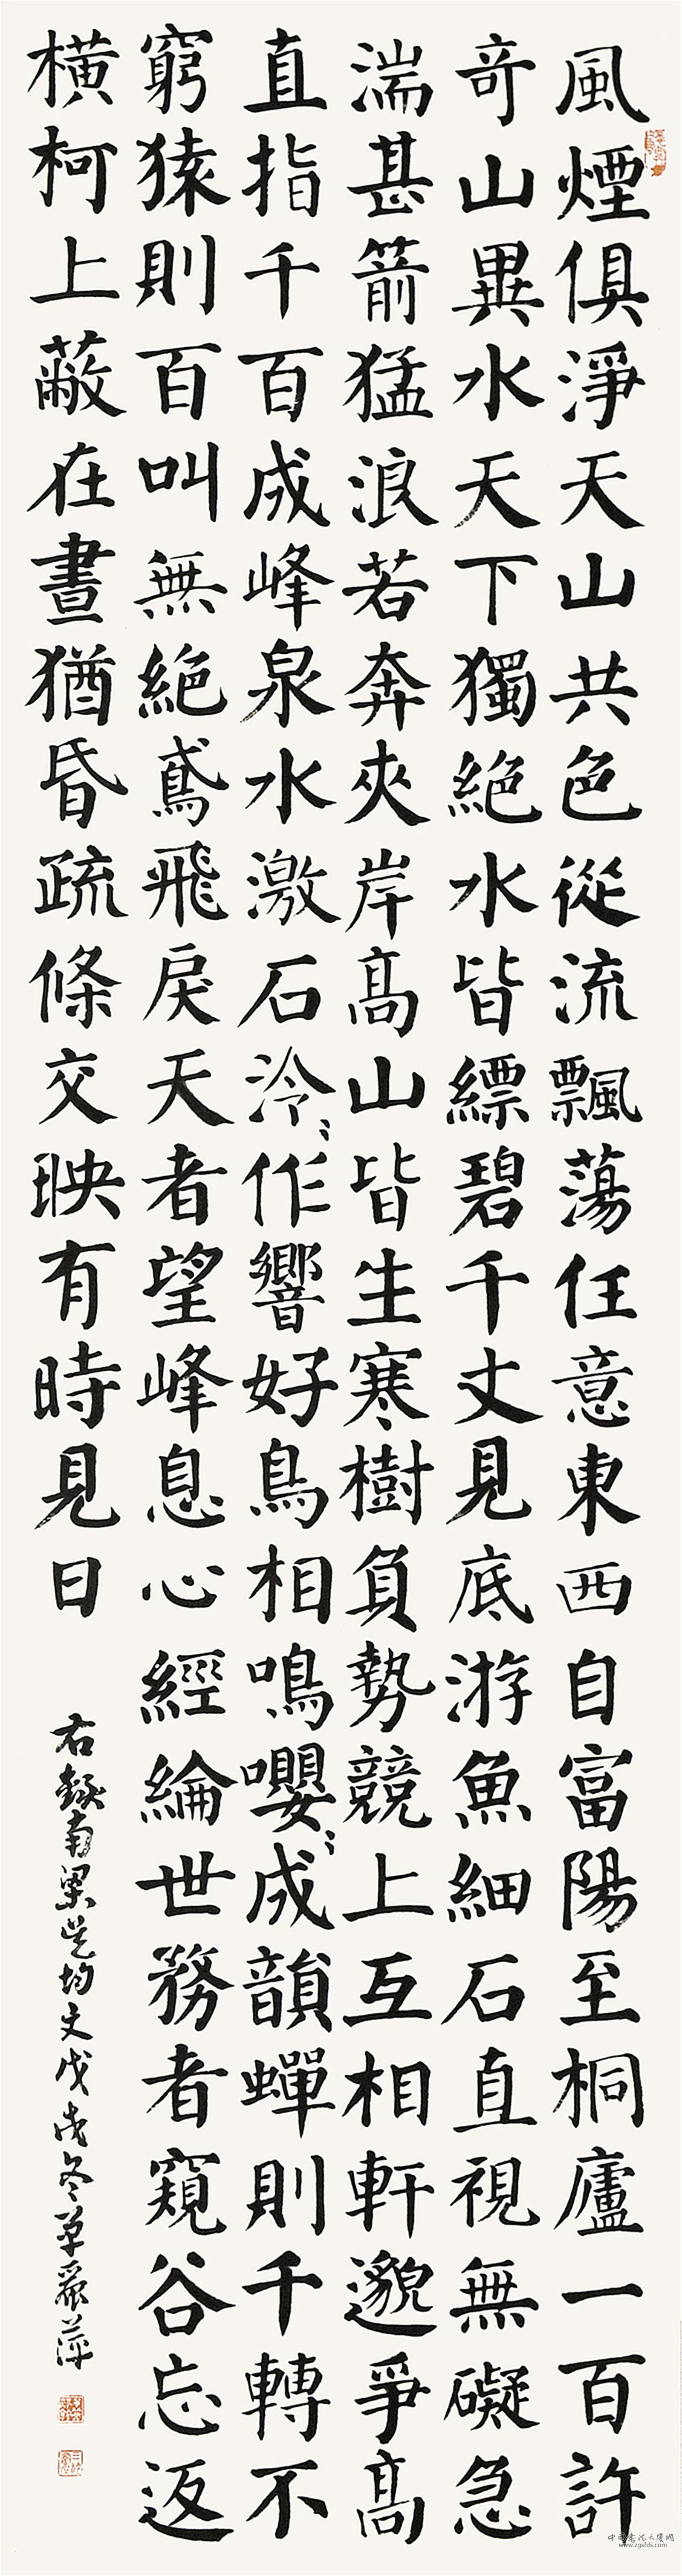 風煙俱淨天山共色從流飄蕩任意東西自富陽至桐廬一百許
奇山異水天下獨絕水皆縹碧千丈見底游魚細石直視無礙急
湍甚箭猛浪若奔夾岸高山皆生寒樹負勢競上互相軒邈爭高
直指千百成峰泉水激石泠〻作響好鳥相鳴嚶〻成韻蟬則千轉不
窮猿則百叫無絕鳶飛戾天者望峰息心經綸世務者窺谷忘返
橫柯上蔽在晝猶昏疏條交映有時見日
右錄南梁吴均文戊戌冬萍
www.zgsfds.com